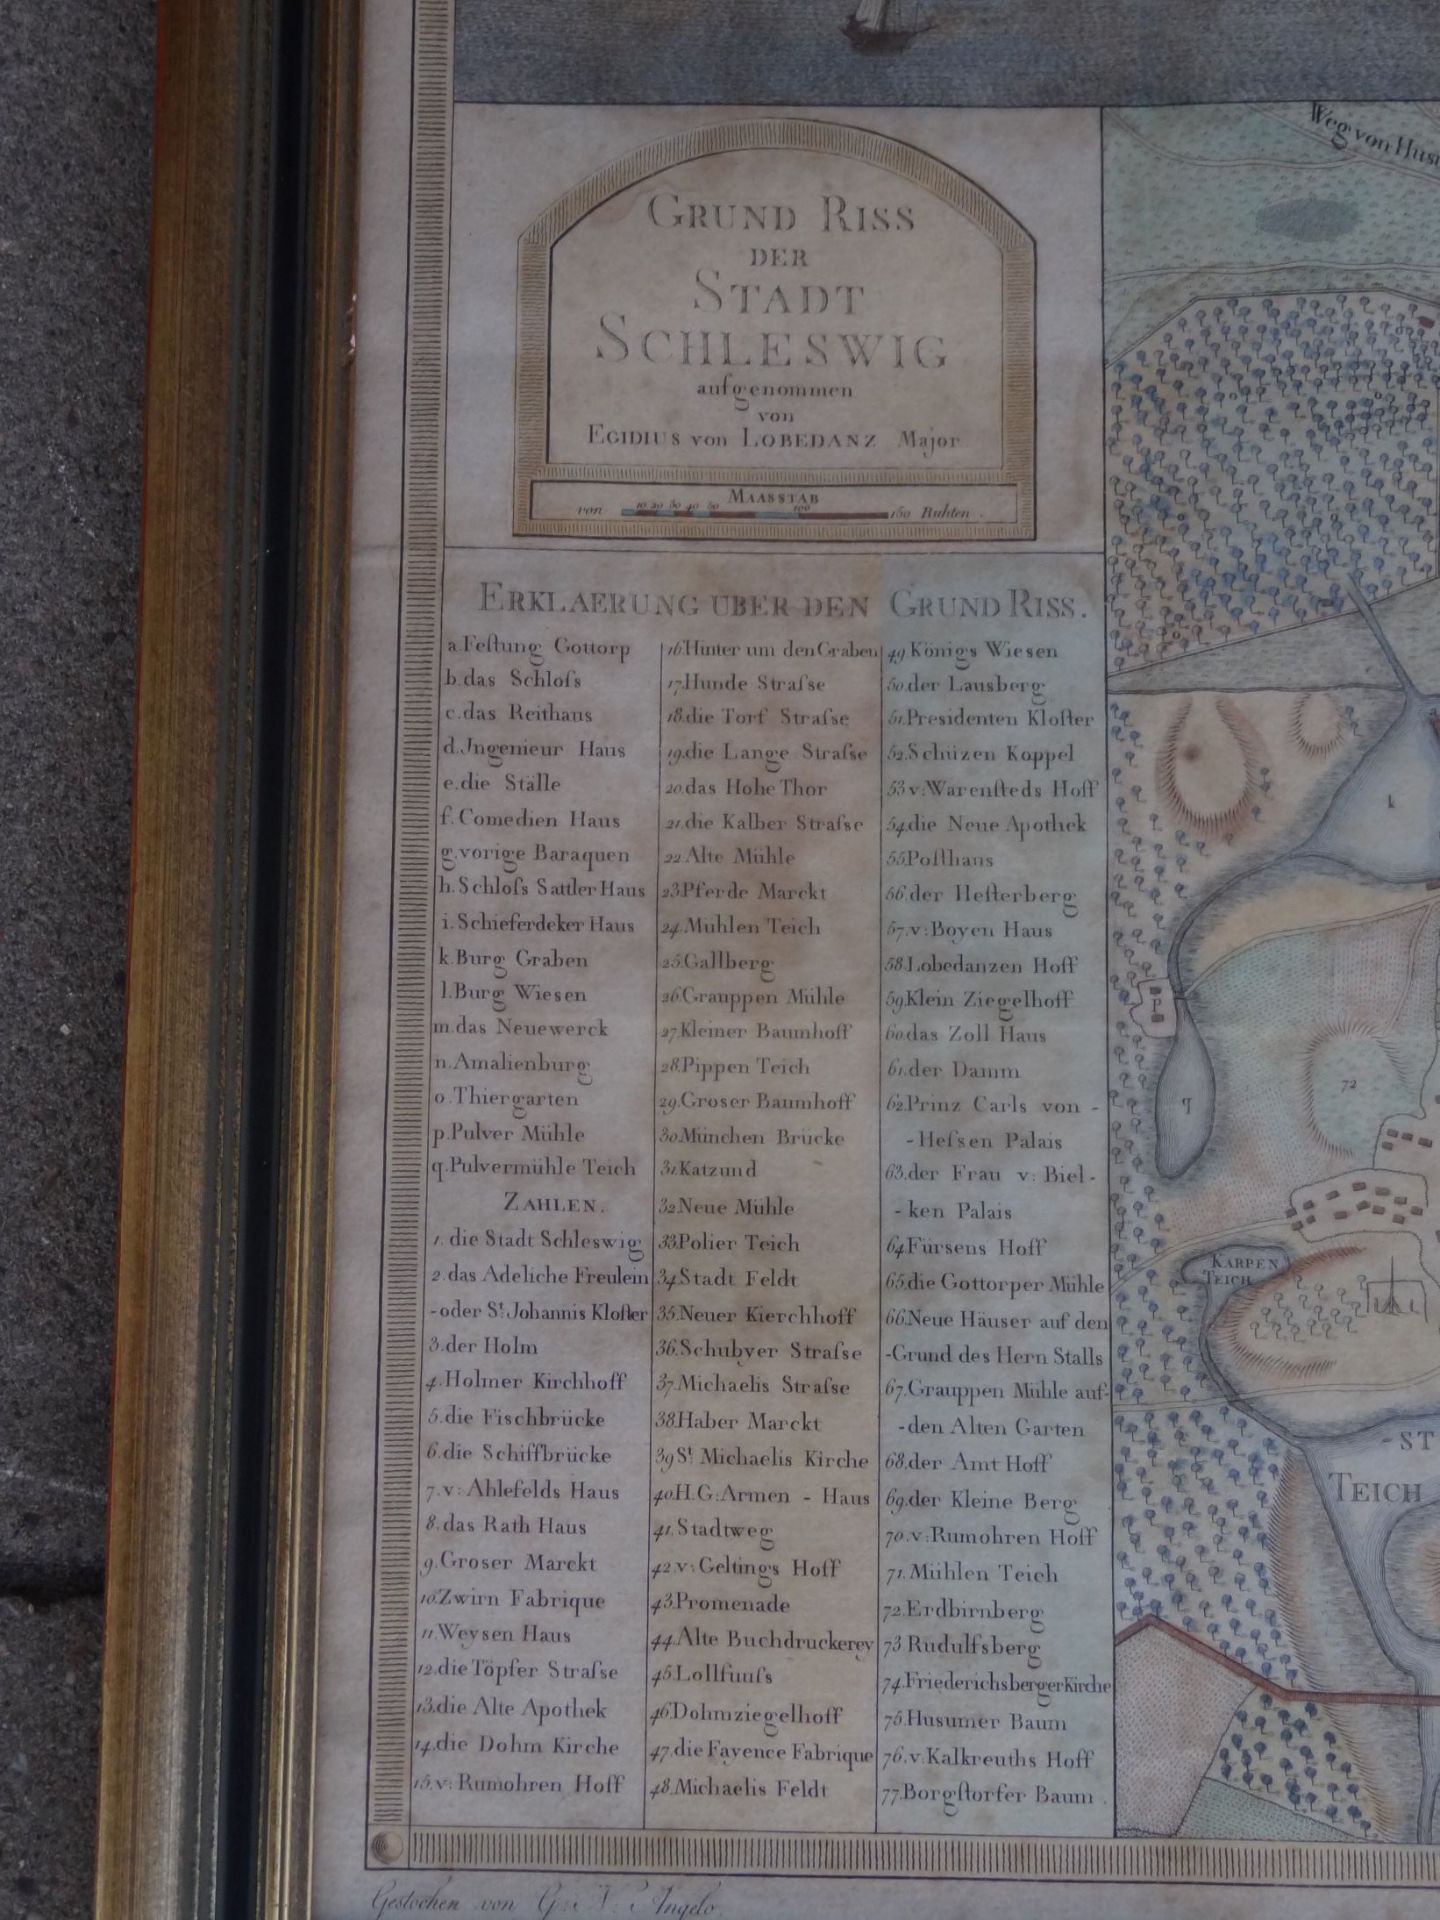 Weg von
GRUND RISS
DER
STADT
SCHLESWIG
aufgenommen
von
EGIDIUS von LOBEDANZ Major
MAASSTAB
von 10 20 30 40 50 100 150 Ruhten.
ERKLAERUNG UBER DEN GRUND RISS.
a. Feſtung Gottorp
b. das Schloſs
c. das Reithaus
d. Jngenieur Haus
e. die Ställe
f. Comedien Haus
g. vorige Baraquen
h. Schloſs Sattler Haus
i. Schieferdeker Haus
k. Burg Graben
l. Burg Wiesen
m. das Neuewerck
n. Amalienburg
o. Thiergarten
p. Pulver Mühle
q. Pulvermühle Teich
ZAHLEN.
1. die Stadt Schleswig
2. das Adeliche Freulein
- oder St. Johannis Kloſter
3. der Holm
4. Holmer Kirchhoff
5. die Fischbrücke
6. die Schiffbrücke
7. v: Ahlefelds Haus
8. das Rath Haus
9. Groser Marckt
10. Zwirn Fabrique
11. Weysen Haus
12. die Töpfer Straſse
13. die Alte Apothek
14. die Dohm Kirche
15. v: Rumohren Hoff
16. Hinter um den Graben
17. Hunde Straſse
18. die Torf Straſse
19. die Lange Straſse
20. das Hohe Thor
21. die Kalber Straſse
22. Alte Mühle
23. Pferde Marckt
24. Mühlen Teich
25. Gallberg
26. Grauppen Mühle
27. Kleiner Baumhoff
28. Pippen Teich
29. Groser Baumhoff
30. München Brücke
31. Katzund
32. Neue Mühle
33. Polier Teich
34. Stadt Feldt
35. Neuer Kierchhoff
36. Schubyer Straſse
37. Michaelis Straſse
38. Haber Marckt
39. St. Michaelis Kirche
40. H.G: Armen - Haus
41. Stadtweg
42. v: Geltings Hoff
43. Promenade
44. Alte Buchdruckerey
45. Lollfuuſs
46. Dohmziegelhoff
47. die Fayence Fabrique
48. Michaelis Feldt
49. Königs Wiesen
50. der Lausberg
51. Presidenten Kloſter
52. Schüzen Koppel
53. v: Warenſteds Hoff
54. die Neue Apothek
55. Poſthaus
56. der Heſterberg
57. v: Boyen Haus
58. Lobedanzen Hoff
59. Klein Ziegelhoff
60. das Zoll Haus
61. der Damm
62. Prinz Carls von -
- Heſsen Palais
63. der Frau v: Biel-
- ken Palais
64. Fürsens Hoff
65. die Gottorper Mühle
66. Neue Häuser auf den
- Grund des Hern Stalls
67. Grauppen Mühle auf-
- den Alten Garten
68. der Amt Hoff
69. der Kleine Berg
70. v: Rumohren Hoff
71. Mühlen Teich
72. Erdbirnberg
73. Rudulfsberg
74. Friederichsberger Kirche
75. Husumer Baum
76. v: Kalkreuths Hoff
77. Borgſtorfer Baum.
k
p
q
72
KARPEN
TEICH
- ST
TEICH
Gestochen von G: N: Angelo.